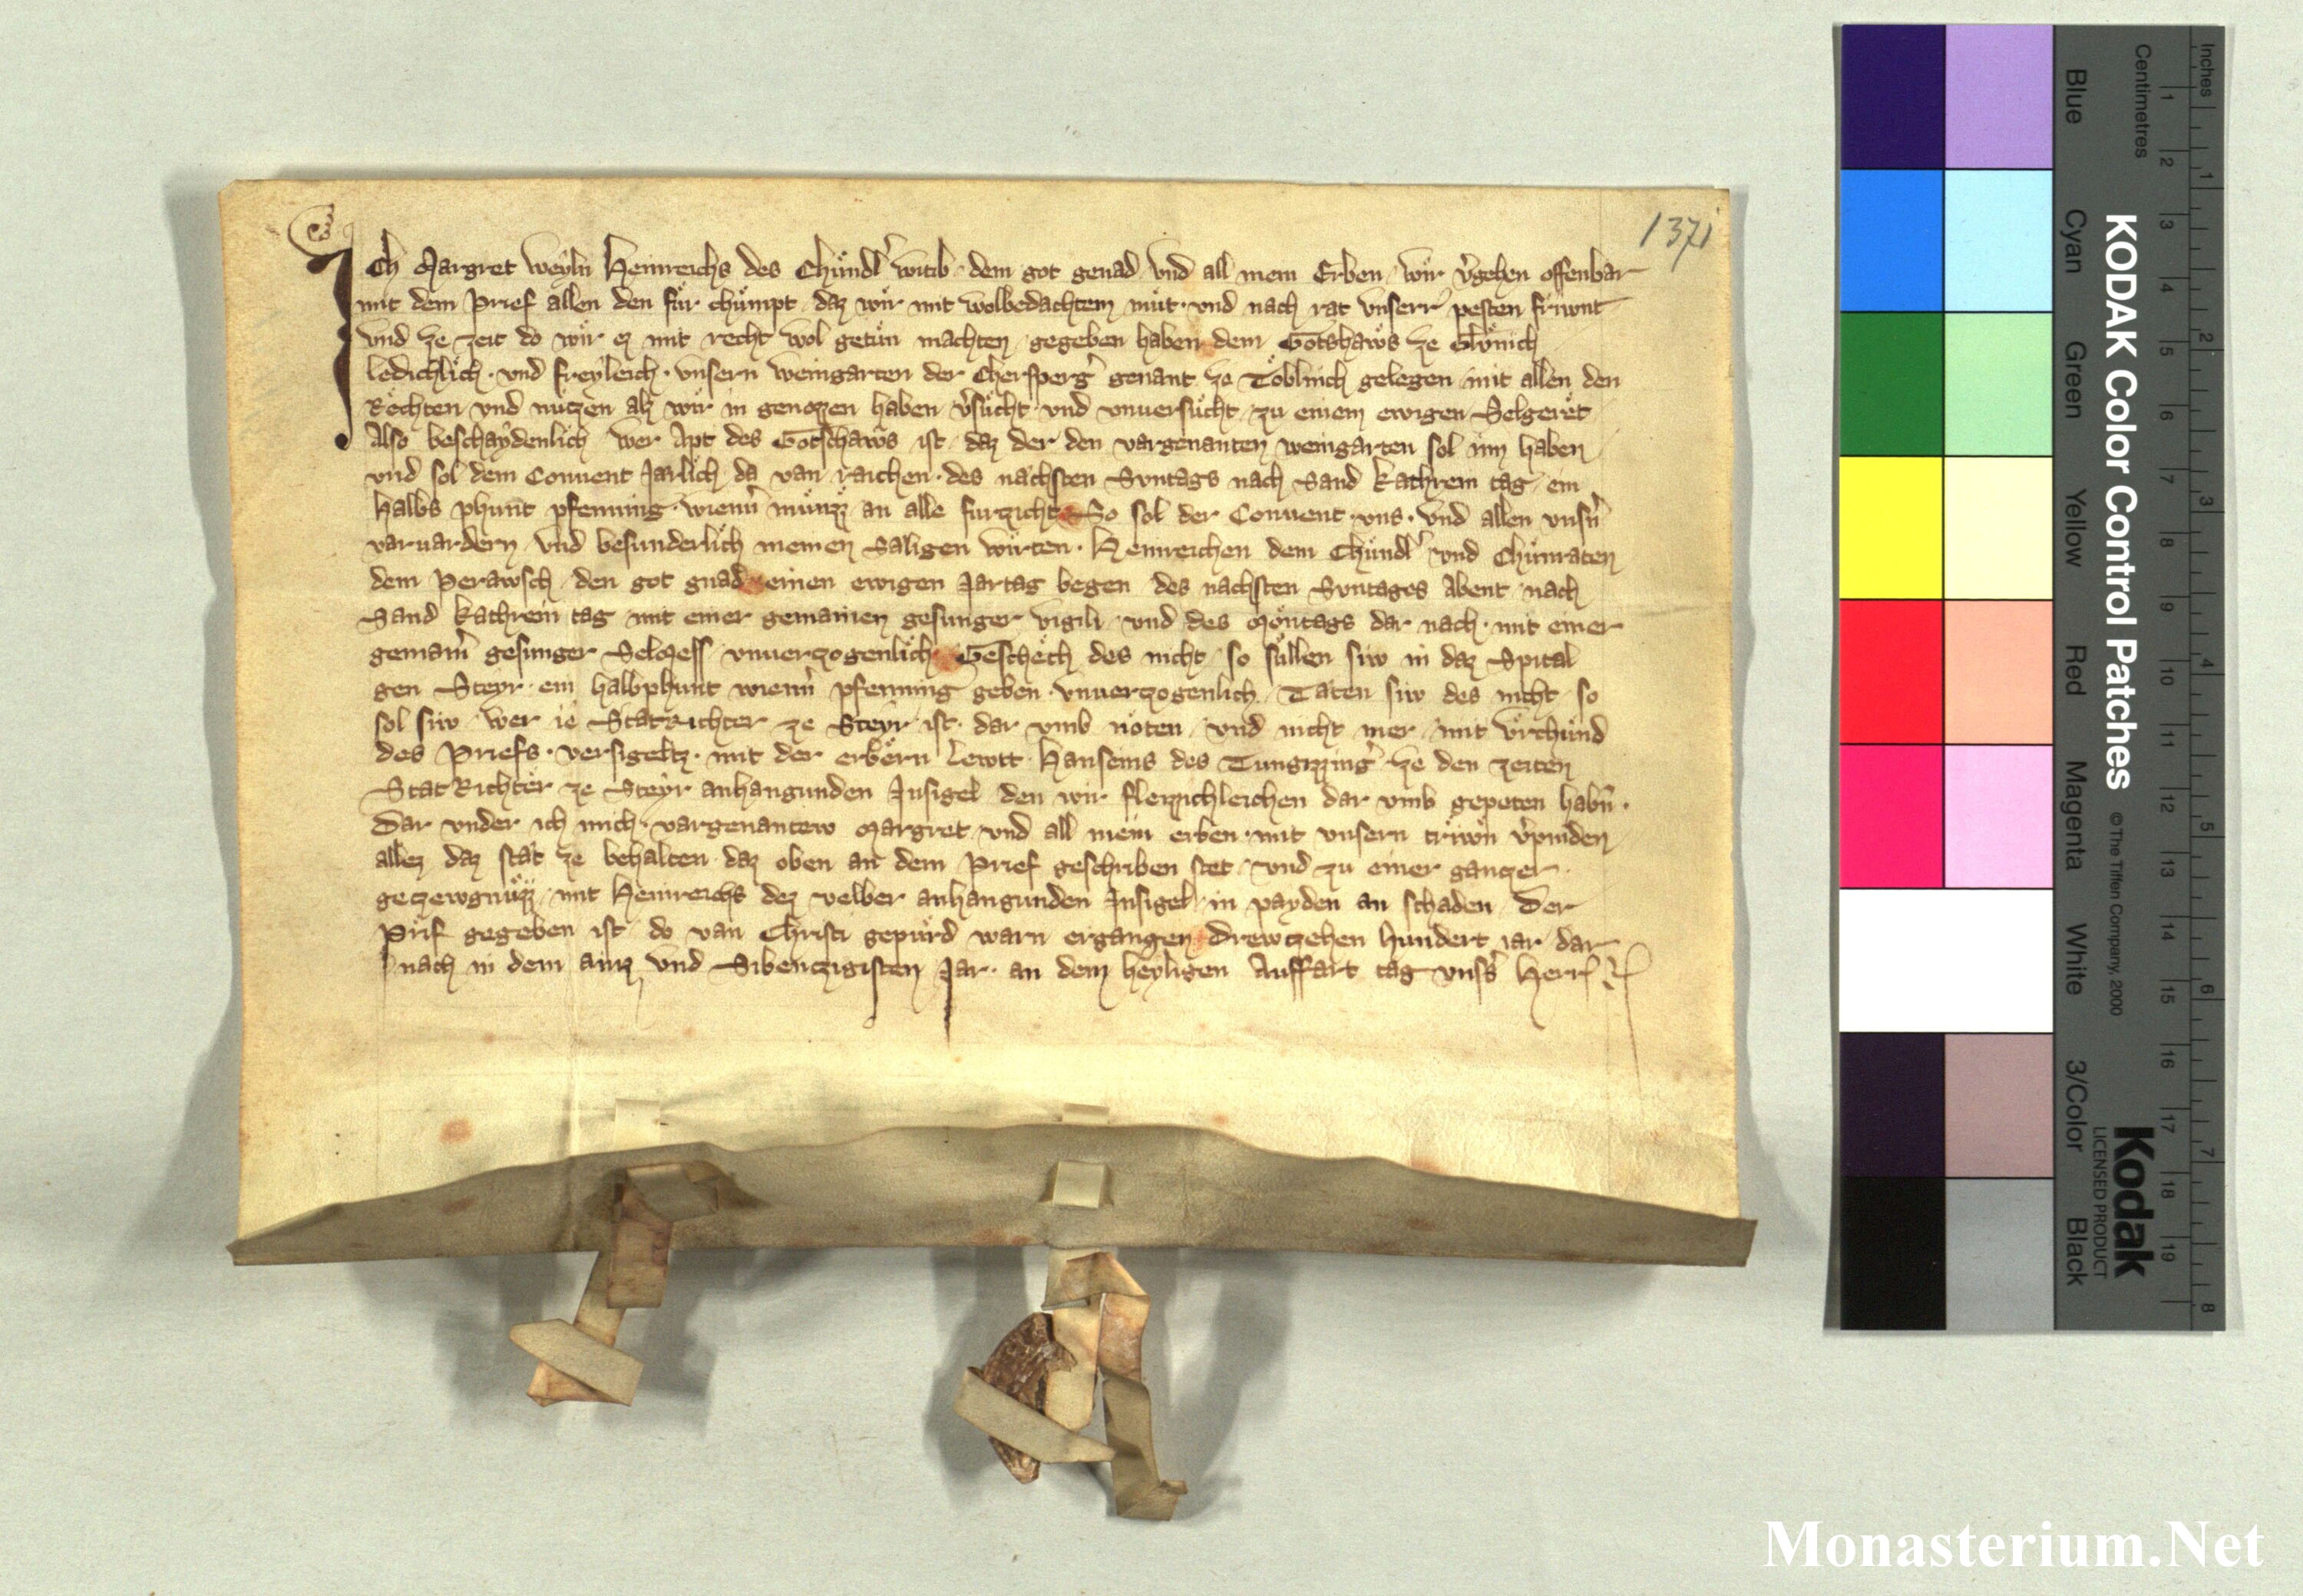 1371
Ich Margret weyln Heinreichs des Chündl' witib dem got genad vnd all mein Erben wir v'gehen offenbar
mit dem Prief allen den für chümpt daz wir mit wolbedachtem müt vnd nach rat vnserr pesten friwnt
vnd ze zeit do wir ez mit recht wol getün machten gegeben haben dem Gotshaws ze Glewnich
ledichlich vnd freyleich vnsern weingarten der Chersperg' genant ze Töblinch gelegen mit allen den
Rechten vnd nutzen alz wir in genozzen haben v'sücht vnd vnuersücht zu einem ewigen Selgerét
Also beschaydenlich wer Apt des Gotschaws ist daz der den vargenanten weingarten sol inn haben
vnd sol dem Conuent Jarlich da van raichen des nachsten Svntags nach Sand kathrein tag ein
halbs phunt pfenning wienn' münzz an alle furzicht So sol der Conuent vns vnd allen vnsn'
varuardern vnd besunderlich meinen Saligen wirten Heinreichen dem Chündl' vnd Chünraten
dem Perawsch den got gnad einen ewigen Jartag begen des nachsten Svntages Abent nach
Sand kathrein tag mit einer gemainen gesunger vigili vnd des Möntags dar nach mit einer
gemain' gesunger Selmess vnuerzogenlich Geschéch des nicht so süllen siw in daz Spital
gen Steyr ein halbphunt wienn' pfenning geben vnuerzogenlich Taten siw des nicht so
sol siw wer ie StatRichter ze Steyr ist dar vmb nöten vnd nicht mer mit vrchünd
des Priefs versigeltz mit der erbern lewtt Hanseins des Tungozzing' ze den zeiten
StatRichter ze Steyr anhangunden Insigel den wir fleizzichleichen dar vmb gepeten habn'
Dar vnder ich mich vargenantew Margret vnd all mein erben mit vnsern triwn v'pinden
allez daz stat ze behalten daz oben an dem Prief geschriben stet vnd zu einer ganczer
geczewgnüzz mit Heinreichs dez velber anhangunden Insigel in payden an schaden Der
Prif gegeben ist do van Christi gepürd warn ergangen Drewczehen hundert iar dar
nach in dem ainz vnd Sibenczigisten Jar an dem heyligen Auffart tag vnss' Herr
KODAK Color Control Patches
© The Tiffen Company, 2000
Kodak
LICENSED PRODUCT
Inches
Centimetres
1 2 3 4 5 6 7 8 9 10 11 12 13 14 15 16 17 18 19
1 2 3 4 5 6 7 8
Blue
Cyan
Green
Yellow
Red
Magenta
White
3/Color
Black
Monasterium.Net